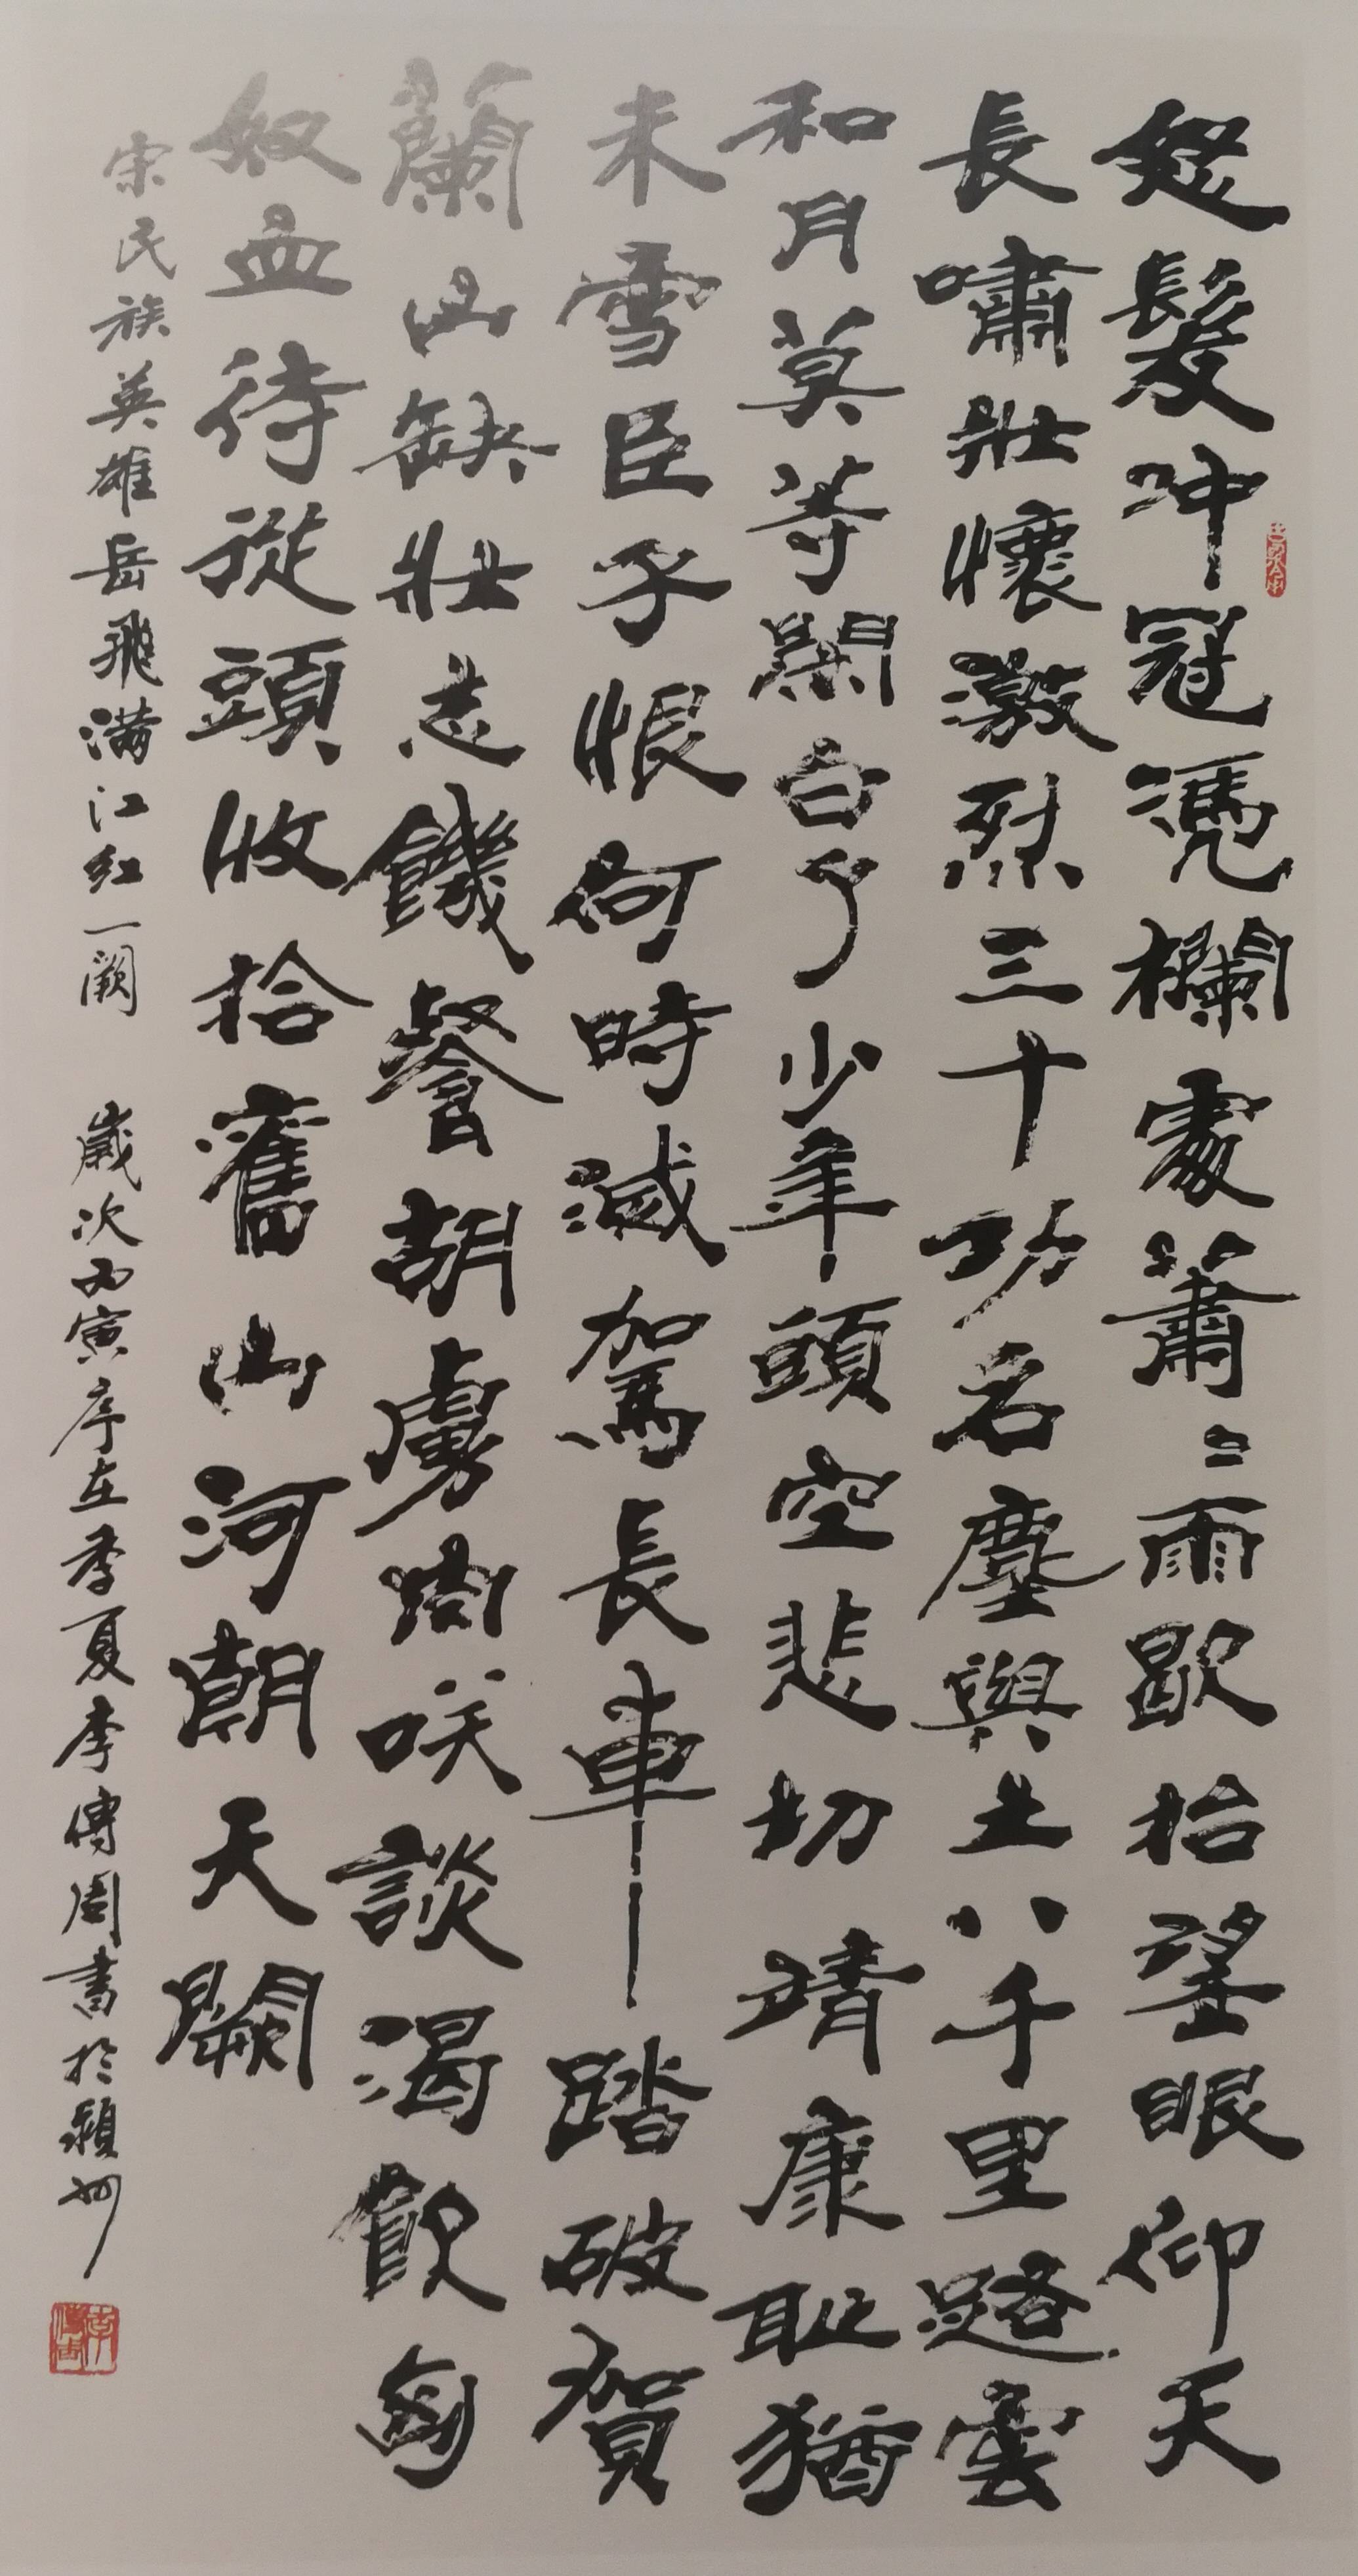 怒髮冲冠憑欄處蕭〻雨歇抬望眼仰天
長嘯壯懷激烈三十功名塵與土八千里路雲
和月莫等閑白了少年頭空悲切靖康耻猶
未雪臣子恨何時滅駕長車踏破賀
蘭山缺壯志饑餐胡虜肉笑談渴飲匈
奴血待從頭收拾舊山河朝天闕
宋民族英雄岳飛滿江紅一闕 歲次丙寅序在季夏李傳周書於潁州